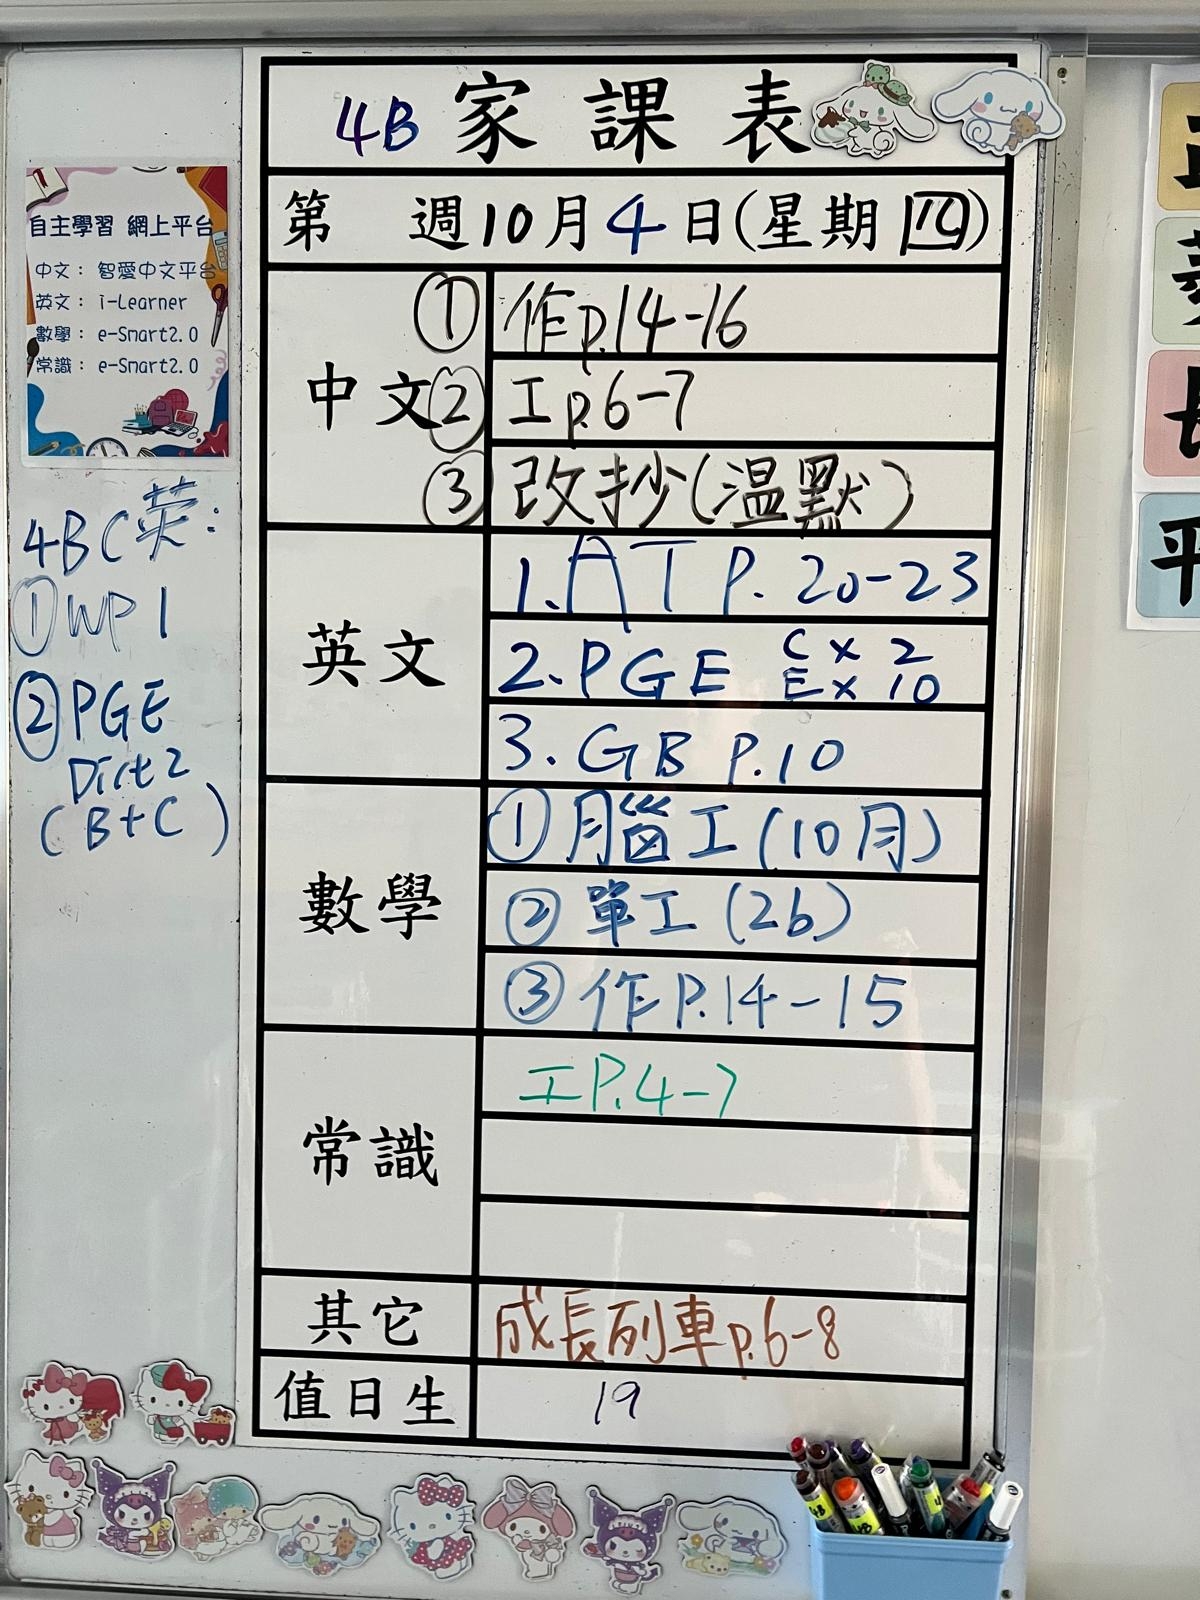 4B 家課表
第 週10月4日(星期四)
中文
① 作p.14-16
② 工p.6-7
③ 改抄(溫默)
英文
1. AT P. 20-23
2. PGE C x 2
E x 10
3. GB P.10
數學
① 腦工(10月)
② 單工(2b)
③ 作P.14-15
常識
工P.4-7
其它
成長列車p.6-8
值日生
19
自主學習 網上平台
中文： 智愛中文平台
英文： i-Learner
數學： e-Smart2.0
常識： e-Smart2.0
4BC英:
① WP 1
② PGE
Dict 2
(B+C)
平